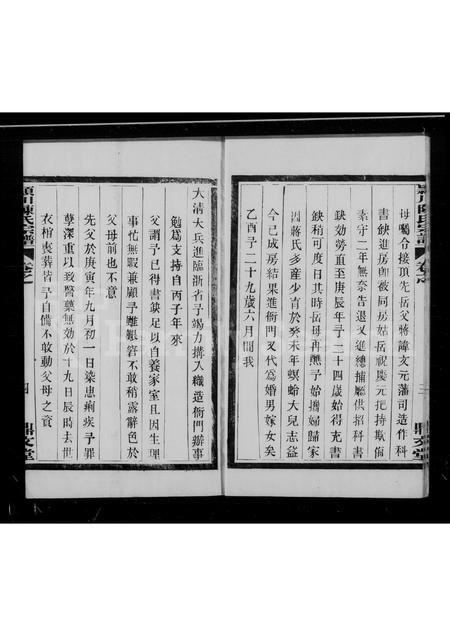 潁川陳氏宗譜
母囑令接頂先岳父蔣諱文元藩司造作科
書缺進房卽被同房姑岳祝慶元把持欺侮
素守二年無奈告退又進總捕廳供招科書
缺効勞直至庚辰年子二十四歲始得充書
缺稍可度日其時岳母再醮子始攜婦歸家
因蔣氏多產少育於癸未年螟蛉大兒志益
今已成房結果進衙門又代為婚男嫁女矣
乙酉子二十九歲六月間我
三
鼎文堂
大清大兵進臨浙省子竭力搆入織造衙門辦事
勉為支持自丙子年來
父謂子已得書缺足以自養家室且因生理
事忙無暇兼顧子雖艱窘不敢稍露辭色於
父母前也不意
先父於庚寅年九月初一日染患痢疾子罪
孽深重以致醫藥無効於十九日辰時去世
衣棺喪葬皆子自備不敢動父母之資
潁川陳氏宗譜
四
鼎文堂